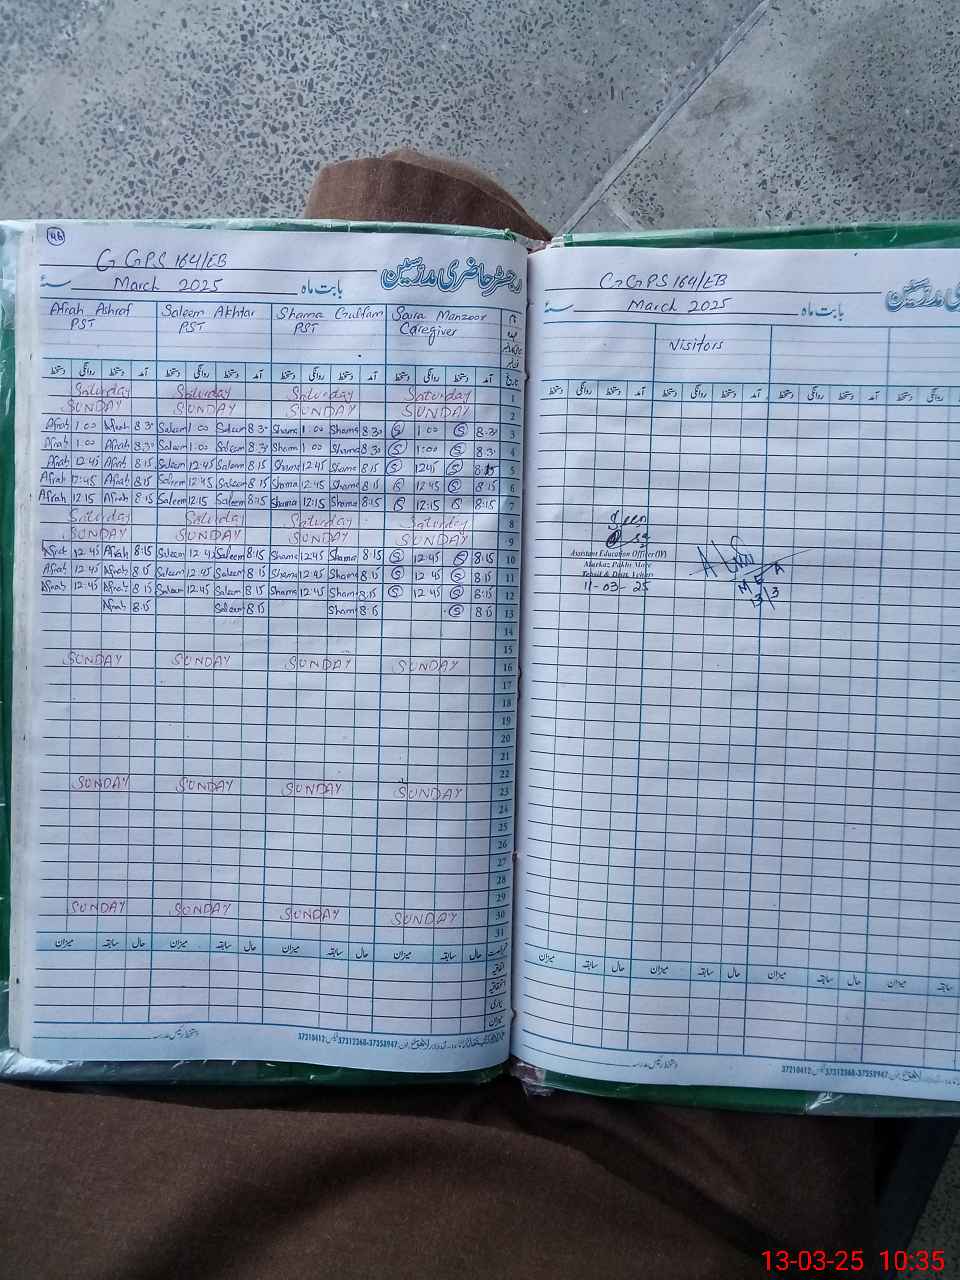 46
G GPS 164/EB
رجسٹر حاضری مدرسین
March 2025
بابت ماہ
سنہ
Afrah Ashraf
PST
Saleem Akhtar
PST
Shama Gulfam
PST
Saira Manzoor
Caregiver
دستخط روانگی دستخط آمد دستخط روانگی دستخط آمد دستخط روانگی دستخط آمد دستخط روانگی دستخط آمد تاریخ
Saturday Saturday Saturday Saturday 1
SUNDAY SUNDAY SUNDAY SUNDAY 2
Afrah 1:00 Afrah 8:30 Saleem 1:00 Saleem 8:30 Shama 1:00 Shama 8:30 S 1:00 S 8:30 3
Afrah 1:00 Afrah 8:30 Saleem 1:00 Saleem 8:30 Shama 1:00 Shama 8:30 S 1:00 S 8:30 4
Afrah 12:45 Afrah 8:15 Saleem 12:45 Saleem 8:15 Shama 12:45 Shama 8:15 S 12:45 S 8:15 5
Afrah 12:45 Afrah 8:15 Saleem 12:45 Saleem 8:15 Shama 12:45 Shama 8:15 S 12:45 S 8:15 6
Afrah 12:15 Afrah 8:15 Saleem 12:15 Saleem 8:15 Shama 12:15 Shama 8:15 S 12:15 S 8:15 7
Saturday Saturday Saturday Saturday 8
SUNDAY SUNDAY SUNDAY SUNDAY 9
Afrah 12:45 Afrah 8:15 Saleem 12:45 Saleem 8:15 Shama 12:45 Shama 8:15 S 12:45 S 8:15 10
Afrah 12:45 Afrah 8:15 Saleem 12:45 Saleem 8:15 Shama 12:45 Shama 8:15 S 12:45 S 8:15 11
Afrah 12:45 Afrah 8:15 Saleem 12:45 Saleem 8:15 Shama 12:45 Shama 8:15 S 12:45 S 8:15 12
Afrah 8:15 Saleem 8:15 Sham 8:15 S 8:15 13
14
15
SUNDAY SUNDAY SUNDAY SUNDAY 16
17
18
19
20
21
22
SUNDAY SUNDAY SUNDAY SUNDAY 23
24
25
26
27
28
29
SUNDAY SUNDAY SUNDAY SUNDAY 30
31
میزان سابقہ حال میزان سابقہ حال میزان سابقہ حال میزان سابقہ حال
اتفاقیہ
استحقاقیہ
بیماری
میزان
دستخط رئیس مدرسہ
37210412 37312368-37358947
G GPS 164/EB
March 2025
بابت ماہ
سنہ
Visitors
دستخط روانگی دستخط آمد دستخط روانگی دستخط آمد دستخط روانگی دستخط آمد دستخط روانگی
Seen
Assistant Education Officer (W)
Markaz Pakhi More
Tehsil & Distt. Vehari
11-03-25
MEA
13/3
میزان سابقہ حال میزان سابقہ حال میزان سابقہ حال میزان سابقہ
دستخط رئیس مدرسہ
37210412 37312368-37358947
13-03-25 10:35